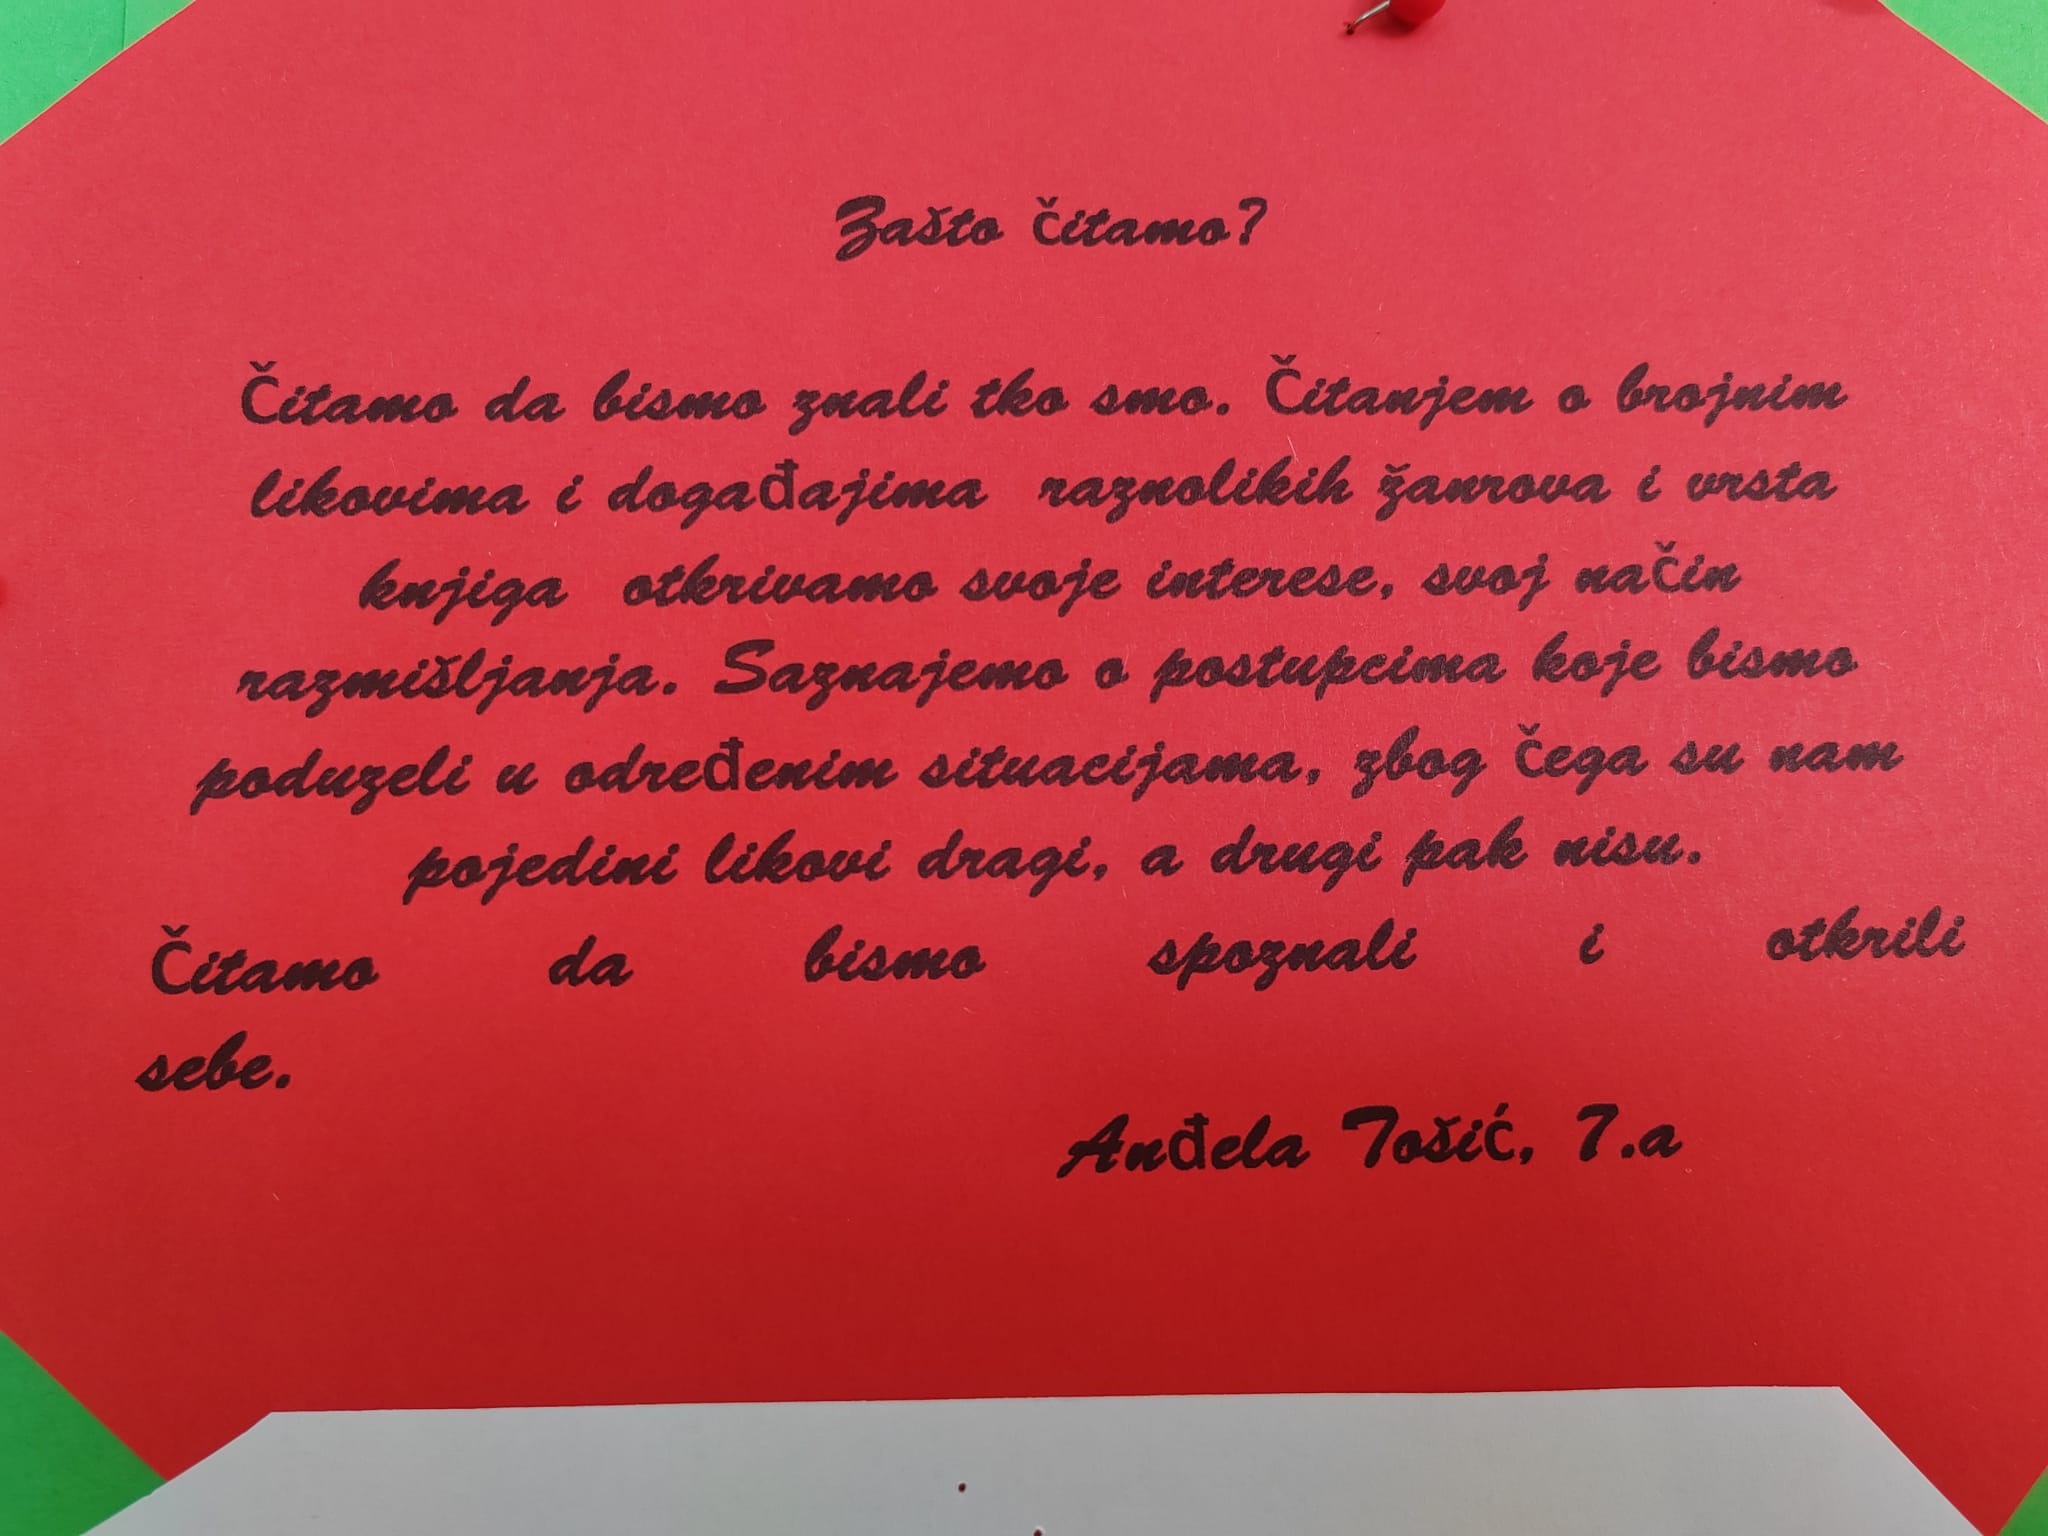 Zašto čitamo?
Čitamo da bismo znali tko smo. Čitanjem o brojnim
likovima i događajima raznolikih žanrova i vrsta
knjiga otkrivamo svoje interese, svoj način
razmišljanja. Saznajemo o postupcima koje bismo
poduzeli u određenim situacijama, zbog čega su nam
pojedini likovi dragi, a drugi pak nisu.
Čitamo da bismo spoznali i otkrili
sebe.
Anđela Tošić, 7.a